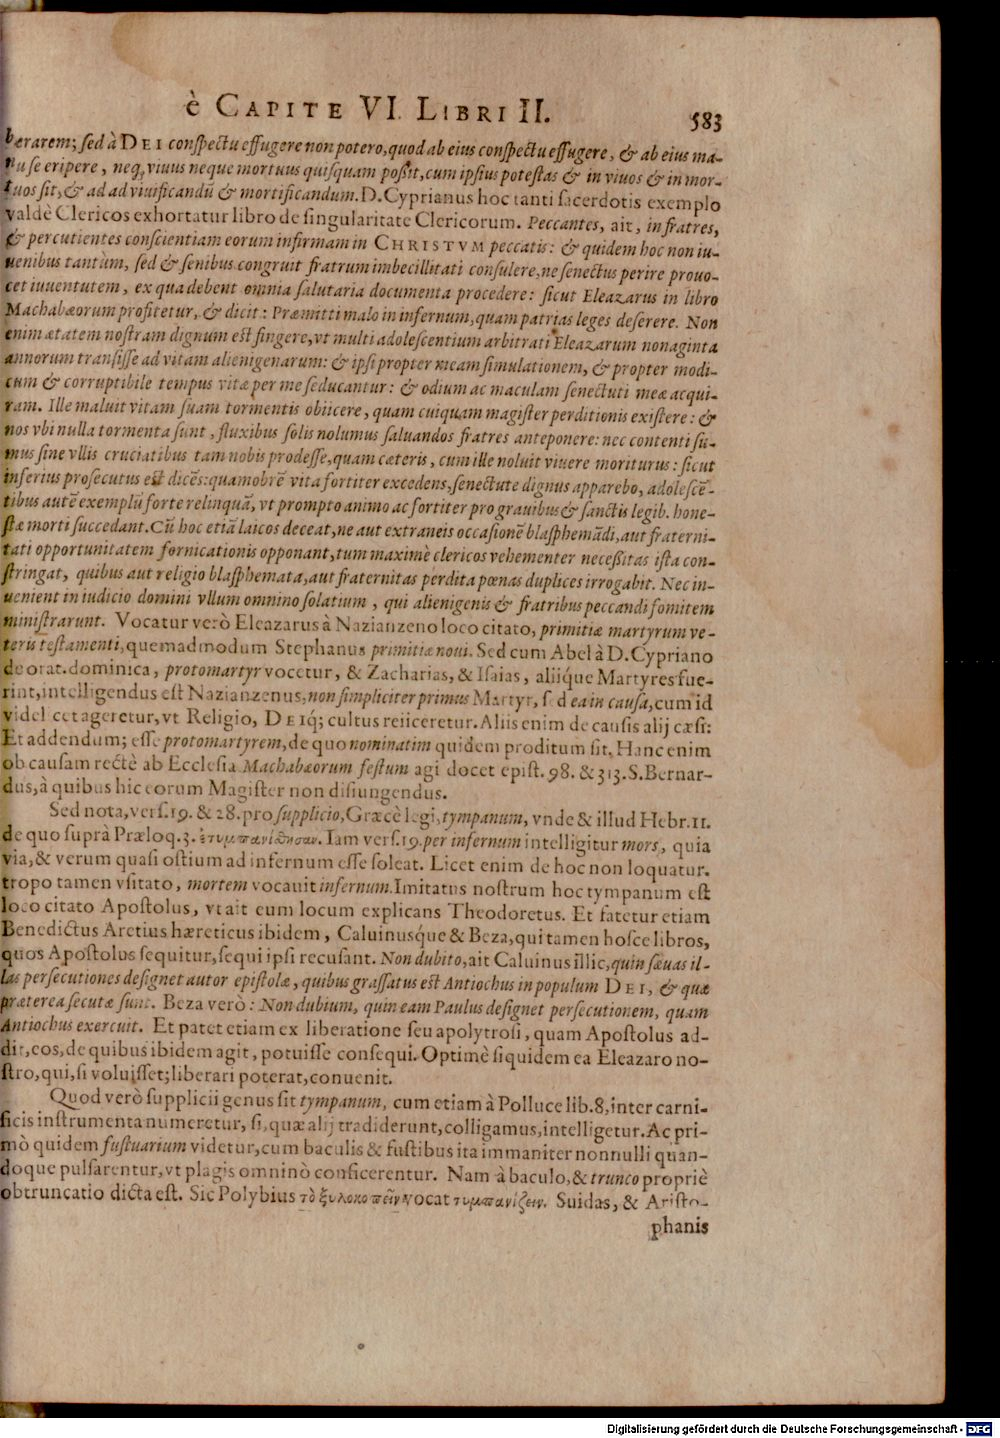 è CAPITE VI. LIBRI II. 583
berarem; sed à DEI conspectu effugere non potero, quod ab eius conspectu effugere, & ab eius ma-
nu se eripere, neq; viuus neque mortuus quisquam possit, cum ipsius potestas & in viuos & in mor-
tuos sit, & ad ad viuificandũ & mortificandum. D. Cyprianus hoc tanti sacerdotis exemplo
valdè Clericos exhortatur libro de singularitate Clericorum. Peccantes, ait, in fratres,
& percutientes conscientiam eorum infirmam in CHRISTVM peccatis: & quidem hoc non iu-
uenibus tantùm, sed & senibus congruit fratrum imbecillitati consulere, ne senectus perire prouo-
cet iuuentutem, ex qua debent omnia salutaria documenta procedere: sicut Eleazarus in libro
Machabæorum profitetur, & dicit: Præmitti malo in infernum, quam patrias leges deserere. Non
enim ætatem nostram dignum est fingere, vt multi adolescentium arbitrati Eleazarum nonaginta
annorum transisse ad vitam alienigenarum: & ipsi propter meam simulationem, & propter modi-
cum & corruptibile tempus vitæ per me seducantur: & odium ac maculam senectuti meæ acqui-
ram. Ille maluit vitam suam tormentis obiicere, quam cuiquam magister perditionis existere: &
nos vbi nulla tormenta sunt, fluxibus solis nolumus saluandos fratres anteponere: nec contenti su-
mus sine vllis cruciatibus tam nobis prodesse, quam cæteris, cum ille noluit viuere moriturus: sicut
inferius prosecutus est dicẽs: quamobrẽ vita fortiter excedens, senectute dignus apparebo, adolescẽ-
tibus autẽ exemplũ forte relinquã, vt prompto animo ac fortiter pro grauibus & sanctis legib. hone-
stæ morti succedant. Cũ hoc etiã laicos deceat, ne aut extraneis occasionẽ blasphemãdi, aut fraterni-
tati opportunitatem fornicationis opponant, tum maximè clericos vehementer necessitas ista con-
stringat, quibus aut religio blasphemata, aut fraternitas perdita pœnas duplices irrogabit. Nec in-
uenient in iudicio domini vllum omnino solatium, qui alienigenis & fratribus peccandi fomitem
ministrarunt. Vocatur verò Eleazarus à Nazianzeno loco citato, primitiæ martyrum ve-
teris testamenti, quemadmodum Stephanus primitiæ noui. Sed cum Abel à D. Cypriano
de orat. dominica, protomartyr vocetur, & Zacharias, & Isaias, aliique Martyres fue-
rint, intelligendus est Nazianzenus, non simpliciter primus Martyr, sed ea in causa, cum id
videlicet ageretur, vt Religio, DEIq; cultus reiiceretur. Aliis enim de causis alij cæsi:
Et addendum; esse protomartyrem, de quo nominatim quidem proditum sit. Hanc enim
ob causam rectè ab Ecclesia Machabæorum festum agi docet epist. 98. & 313. S. Bernar-
dus, à quibus hic eorum Magister non disiungendus.
Sed nota, vers. 19. & 28. pro supplicio, Græcè legi, tympanum, vnde & illud Hebr. 11.
de quo suprà Præloq. 3. ἐτυμπανίσθησαν. Iam vers. 19. per infernum intelligitur mors, quia
via, & verum quasi ostium ad infernum esse soleat. Licet enim de hoc non loquatur.
tropo tamen vsitato, mortem vocauit infernum. Imitatus nostrum hoc tympanum est
loco citato Apostolus, vt ait eum locum explicans Theodoretus. Et fatetur etiam
Benedictus Aretius hæreticus ibidem, Caluinusque & Beza, qui tamen hosce libros,
quos Apostolus sequitur, sequi ipsi recusant. Non dubito, ait Caluinus illic, quin sæuas il-
las persecutiones designet autor epistolæ, quibus grassatus est Antiochus in populum DEI, & quæ
præterea secutæ sunt. Beza verò: Non dubium, quin eam Paulus designet persecutionem, quam
Antiochus exercuit. Et patet etiam ex liberatione seu apolytrosi, quam Apostolus ad-
dit, eos, de quibus ibidem agit, potuisse consequi. Optimè siquidem ea Eleazaro no-
stro, qui, si voluisset; liberari poterat, conuenit.
Quod verò supplicii genus sit tympanum, cum etiam à Polluce lib. 8, inter carni-
ficis instrumenta numeretur, si, quæ alij tradiderunt, colligamus, intelligetur. Ac pri-
mò quidem fustuarium videtur, cum baculis & fustibus ita immaniter nonnulli quan-
doque pulsarentur, vt plagis omninò conficerentur. Nam à baculo, & trunco propriè
obtruncatio dicta est. Sic Polybius τὸ ξυλοκοπεῖν vocat τυμπανίζειν. Suidas, & Aristo-
phanis
Digitalisierung gefördert durch die Deutsche Forschungsgemeinschaft - DFG